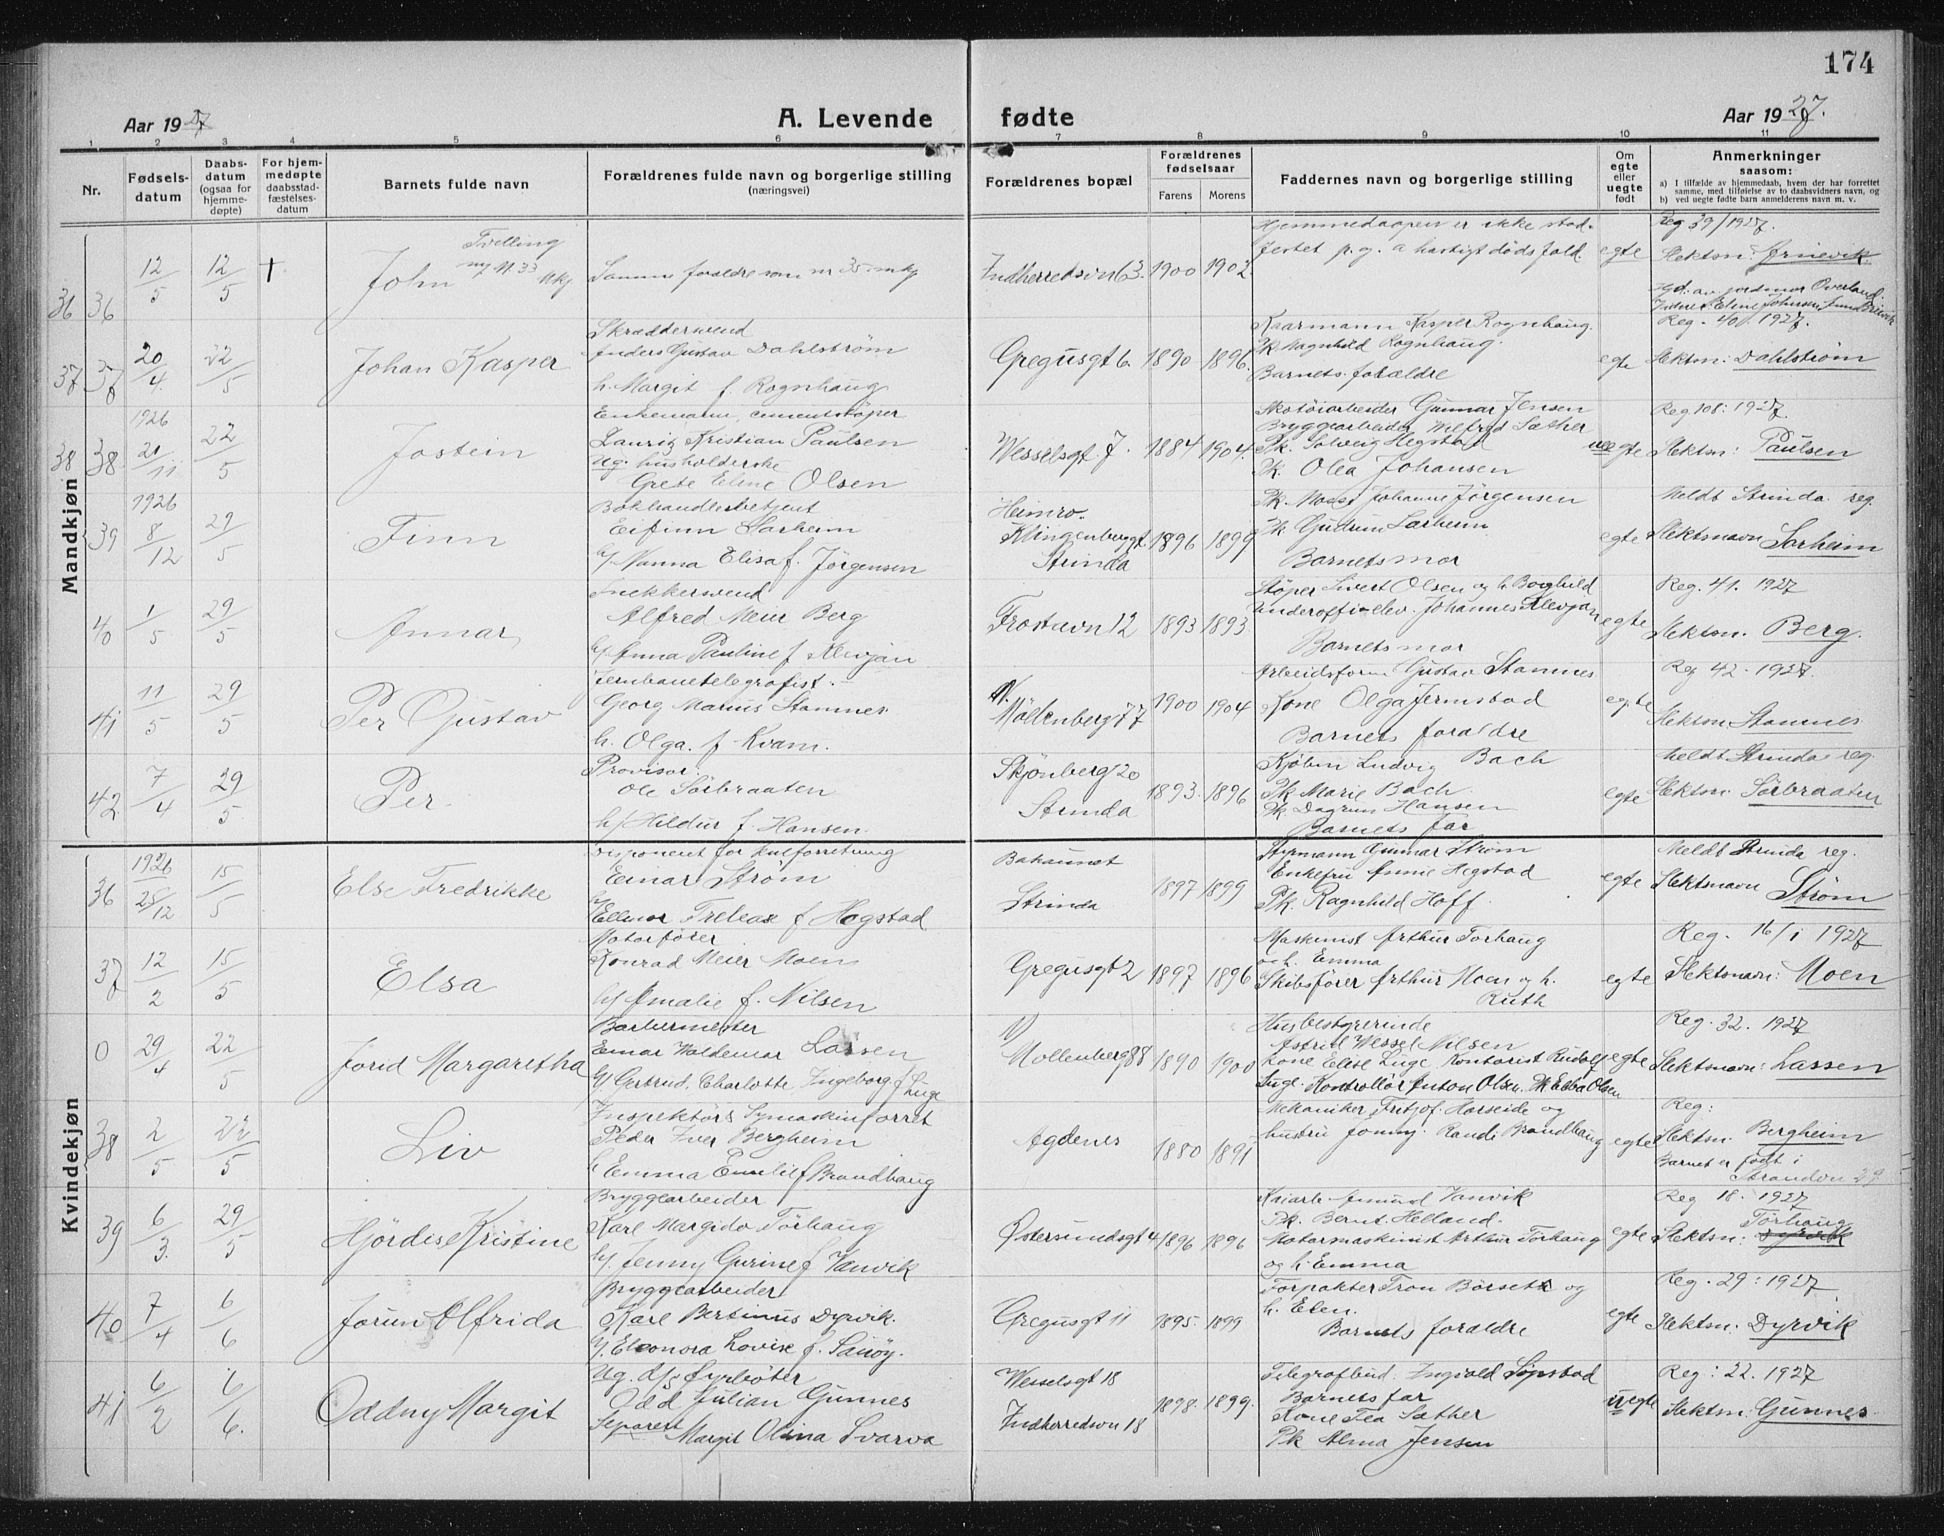 174
Aar 1927
A. Levende
fødte
Aar 1927.
1 2 3 4 5 6 7 8 9 10 11
Nr.
Fødsels-
datum
Daabs-
datum
(ogsaa for
hjemme-
døpte)
For hjem-
medøpte
daabsstad-
fæstelses-
datum
Barnets fulde navn
Forældrenes fulde navn og borgerlige stilling
(næringsvei)
Forældrenes bopæl
Forældrenes
fødselsaar
Farens
Morens
Faddernes navn og borgerlige stilling
Om
egte
eller
uegte
født
Anmerkninger
saasom:
a) I tilfælde av hjemmedaab, hvem der har forrettet
samme, med tilføielse av to daabsvidners navn, og
b) ved uegte fødte barn anmelderens navn m. v.
Mandkjøn
36 36
12/5
12/5
+
Tvelling
John
Samme foraldre som nr 35 mkj
Indherredsvn 63.
1900 1902.
Hjemmedaapen er ikke stad-
festet p.g. a hastigt dødsfald
egte
Reg 39/1927.
Slektsn: Arnevik
37 37
20/4
22/5
Johan Kasper
Skrædderswend
Anders Gustav Dahlstrøm
h. Margit f. Rognhaug
Gregusgt 6
1890 1896.
Kaarmann Kasper Rognhaug.
Pk. Magnhild Rognhaug.
Barnets foraldre
egte
Reg. 40. 1927.
Slektsn: Dahlstrøm
38 38
1926
20/11
22/5
Jostein
Enkemann, cementstøper
Lauriz Kristian Paulsen
Ug. husholderske
Grete Eline Olsen
Wesselsgt. 7.
1884 1904.
Skotøiarbeider Gunnar Jensen
Bryggearbeider Wilfred Sæther
Pk. Solveig Hegstad
Pk. Olea Johansen
uegte
Reg 108: 1927.
Slektsn: Paulsen
39
1926
8/12
29/5
Finn
Bokhandlerbetjent
Eifinn Sarheim
h/ Nanna Elisa f. Jörgensen
Heimro.
Klingenberggt
Strinda
1896 1899
Pk. Moss Johanne Jörgensen
Pk Gudrun Sarheim
Barnets mor
egte
Meldt Strinda reg.
Slektsnavn Sarheim
40
1/5
29/5
Annar
Snekkerswend
Alfred Meier Berg
h/ Anna Pauline f Klevjan
Frostavn 12
1893 1893
Støper Sivert Olsen og h. Borghild
Underoffi-elev. Johannes Klevjan
Barnets mor
egte
Reg. 41. 1927
Slektsn. Berg.
41
11/5
29/5
Per Gustav
Jernbanetelegrafist.
Georg Marius Stamnes
h. Olga. f Kvam.
N.
Möllenberg 77
1900 1904
Arbeidsform Gustav Stamnes
Kone Olga Jermstad
Barnets foraldre
egte
Reg 42. 1927.
Slektsn Stamnes
42
7/4
29/5
Per.
Provisor.
Ole Sörbraaten
h/ Hildur f. Hansen.
Skjönberg 20
Strinda
1893. 1896
Kjöbm Ludvig Bach
Pk Marie Bach.
Pk. Dagrun Hansen
Barnets far
egte
Meldt Strinda reg.
Slektsn: Sörbraaten
Kvindekjøn
36
1926
25/12
15/5
Else Fredrikke
Disponent for kulforretning
Einar Strøm
h/ Ellinor f Hegstad
Bakaunet
Strinda
1897 1899
Styrmann Gunnar Strøm
Enkefru Annie Hegstad
Pk Ragnhild Hoff.
egte
Meldt Strinda reg.
Slektsnavn Strøm
37
12/2
15/5
Elsa
Motorfører
Konrad Meier Moen
h/ Amalie f. Nilsen
Gregusgt 2
1897 1896
Maskinist Arthur Torhaug
og h. Emma
Skibsfører Arthur Moen og h.
Ruth
egte
Reg. 16/1 1927
Slektsnavn: Moen
0
29/4
22/5
Jorid Margaretha
Barbermester
Einar Valdemar Lassen
h/ Gertrud. Charlotte Ingeborg f Luge
N
Mollenberg 88
1890 1900
Husbestyrerinde
Astrid Wessel Nilsen
Kone Elise Luge Kontorist Rudolf
Luge Kontrollør Anton Olsen. Pk Ebba Olsen
egte
Reg. 32. 1927
Slektsnavn: Lassen
38
2/5
22/5
Liv
Inspektørs Symaskinforret
Peder Iver Bergheim
h Emma Emilie f Brandhaug
Agdenes
1880 1891
Mekaniker Fritjof Harseide og
hustru Jonny. Randi Brandhaug
egte
Reg:
Slektsn. Bergheim
Barnet er født i
Strandvn 29
39
6/3.
29/5
Hjördis Kristine
Bryggearbeider
Karl Margido Törhaug
h/ Jenny Gurine f Vanvik
Østersundsgt 4
1896 1896
Kaiarb. Amund Vanvik
Pk. Bernt. Helland.
Motormaskinist Arthur Torhaug
og h. Emma
egte
Reg 18. 1927
Slektsn: Törhaug Dyrvik
40
7/4
6/6
Jorun Alfrida
Bryggearbeider
Karl Bertinus Dyrvik.
h/ Eleonora Lovise f.
Gregusgt 11
1895. 1899
Forpakter Tron Börseth og
h. Elen.
Barnets foraldre
egte
Reg. 29: 1927
Slektsn: Dyrvik
41
6/2
6/6.
Oddny Margit
Ug. Fyrbøter
Odd Julian Gunnes
Separert Margit Olina Svarva
Wesselsgt 18
Indherredsvn 18
1898. 1899.
Telegrafbud. Ingvald Sjøpstad
Barnets far
Kone Tea Sæther
Pk Alma Jensen
uegte
Reg: 22. 1927
Slektsn: Gunnes